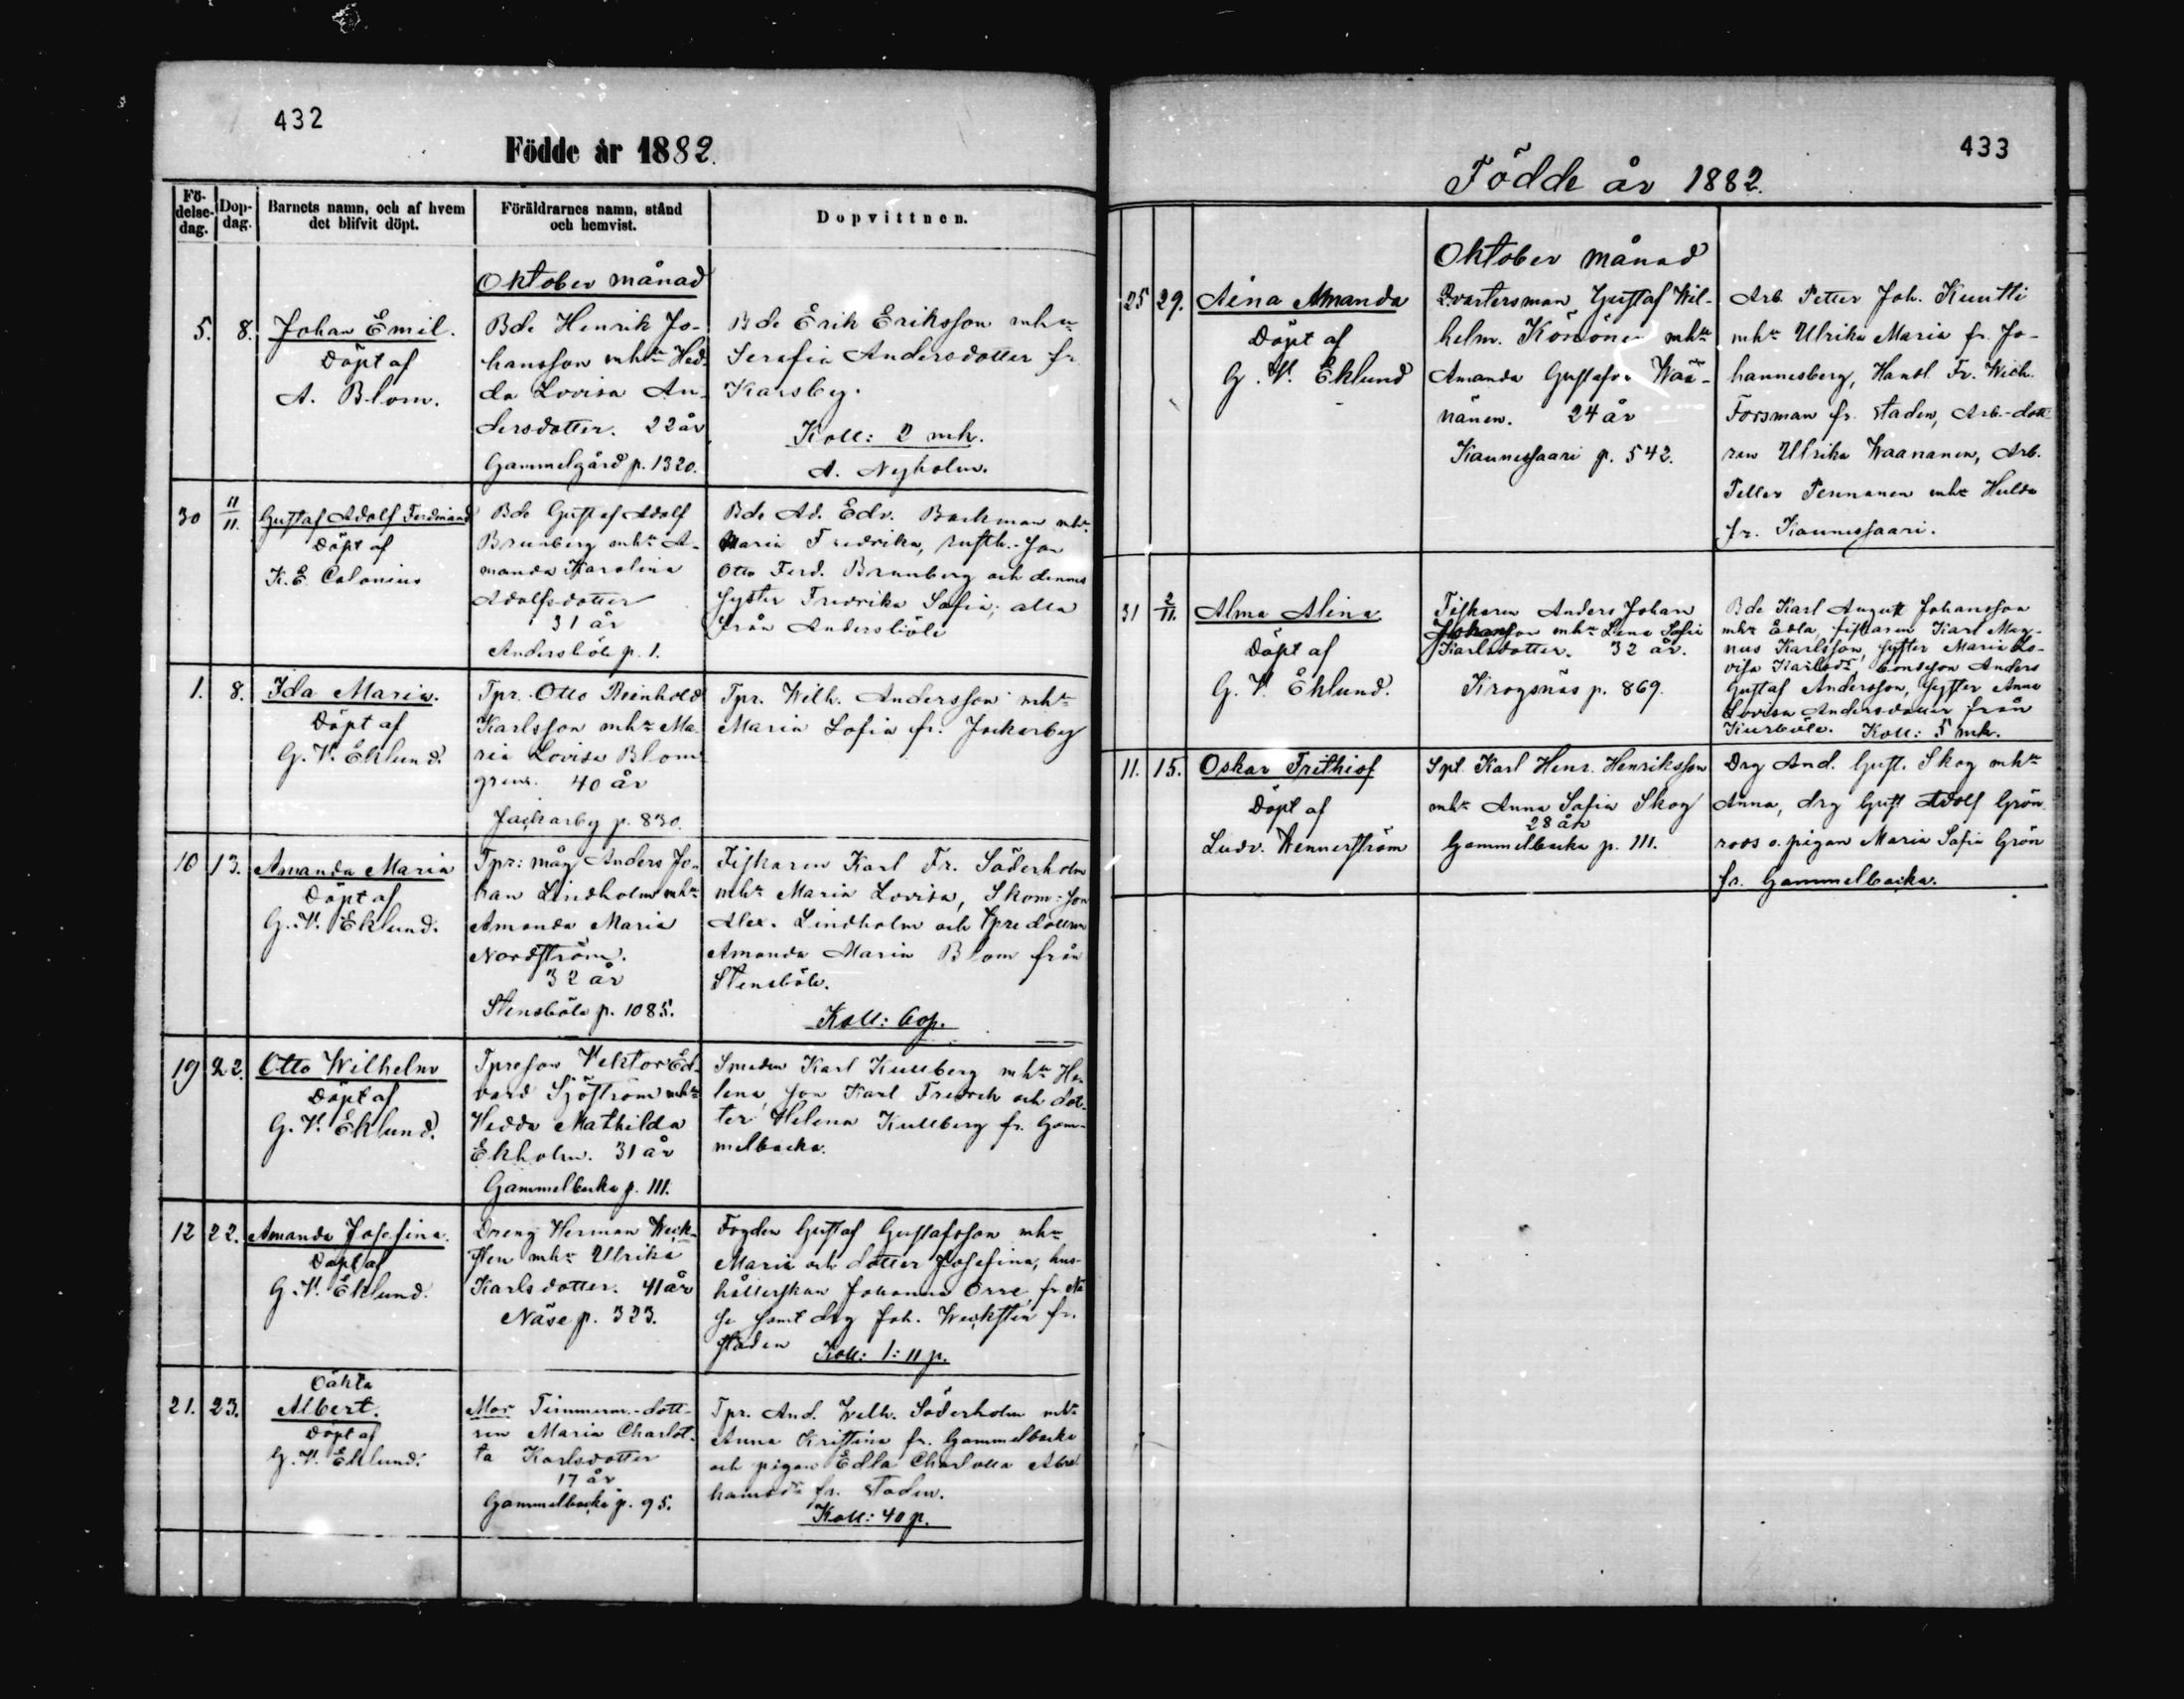 432
Födde år 1882.
Fö-
delse-
dag.
Dop-
dag.
Barnets namn, och af hvem
det blifvit döpt.
Föräldrarnes namn, stånd
och hemvist.
Dopvittnen.
Oktober månad
5. 8.
Johan Emil.
Döpt af
A. Blom.
Bde Henrik Jo-
hansson mhu Hed-
da Lovisa An-
dersdotter. 22 år
Gammelgård p. 1320.
Bde Erik Eriksson mhu
Serafia Andersdotter fr.
Karsby.
Koll: 2 mk.
A. Nyholm.
30 11/11.
Gustaf Adolf Ferdinand
Döpt af
K. E. Calonius
Bde Gustaf Adolf
Brunberg mhu A-
manda Karolina
Adolfsdotter
31 år
Andersböle p. 1.
Bde Ad. Edv. Backman mhu
Maria Fredrika, rusth.-son
Otto Ferd. Brunberg och dennes
syster Fredrika Sofia; alla
från Andersböle
1. 8.
Ida Maria.
Döpt af
G. V. Eklund.
Tpr. Otto Reinhold
Karlsson mhu Ma-
ria Lovisa Blom-
gren. 40 år
Jackarby p. 830.
Tpr. Wilh. Andersson mhu
Maria Sofia fr. Jackarby
10 13.
Amanda Maria
Döpt af
G. V. Eklund.
Tpr: måg Anders Jo-
han Lindholm mhu
Amanda Maria
Nordström.
32 år
Stensböle p. 1085.
Fiskaren Karl Fr. Söderholm
mhu Maria Lovisa, Skom-son
Alex. Lindholm och Tpredottren
Amanda Maria Blom från
Stensböle.
Koll: 60 p.
19 22.
Otto Wilhelm
Döpt af
G. V. Eklund.
Tpreson Viktor Ed-
vard Sjöström mhu
Hedda Mathilda
Ekholm. 31 år
Gammelbacka p. 111.
Smeden Karl Kullberg mhu He-
lena, son Karl Fredrik och dot-
ter Helena Kullberg fr. Gam-
melbacka.
12 22.
Amanda Josefina.
Döpt af
G. V. Eklund.
Dreng Herman Weck-
sten mhu Ulrika
Karlsdotter. 41 år
Näse p. 323.
Fogden Gustaf Gustafsson mhu
Maria och dotter Josefina, hus-
hållerskan Johanna Orre fr. Nä
se samt drg Joh. Weckstén fr.
staden Koll: 1: 11 p.
21. 23.
Oäkta
Albert.
Döpt af
G. V. Eklund.
Mor Timmerm.-dott-
ren Maria Charlot-
ta Karlsdotter
17 år
Gammelbacka p. 95.
Tpr. And. Wilh. Söderholm mhu
Anna Kristina fr. Gammelbacka
och pigan Edla Charlotta Abra
hamsdr fr. staden.
Koll: 40 p.
433
Födde år 1882.
Oktober månad
25 29.
Aina Amanda
Döpt af
G. V. Eklund
Qvartersman Gustaf Wil-
helm Könönen mhu
Amanda Gustafva Wää-
nänen. 24 år
Kaunissaari p. 542.
Arb. Petter Joh. Kuutti
mhu Ulrika Maria fr. Jo-
hannesberg, Handl. Fr. Wich.
Forsman fr. staden, Arb.-dott
ren Ulrika Waananen, Arb.
Petter Pennanen mhu Hulda
fr. Kaunissaari.
31 2/11.
Alma Alina
Döpt af
G. V. Eklund.
Fiskaren Anders Johan
Johansson mhu Lena Sofia
Karlsdotter. 32 år.
Krogsnäs p. 869.
Bde Karl August Johansson
mhu Edla, fiskaren Karl Mag-
nus Karlsson, syster Maria Lo-
visa Karlsdr, bondeson Anders
Gustaf Andersson, syster Anna
Lovisa Andersdotter från
Kurböle. Koll: 5 mk.
11. 15.
Oskar Frithiof
Döpt af
Ludv. Wennerström
Spl. Karl Henr. Henriksson
mhu Anna Sofia Skog
28 år
Gammelbacka p. 111.
Drg And. Gust. Skog mhu
Anna, drg Gust Adolf Grön
roos o. pigan Maria Sofia Grön
fr. Gammelbacka.